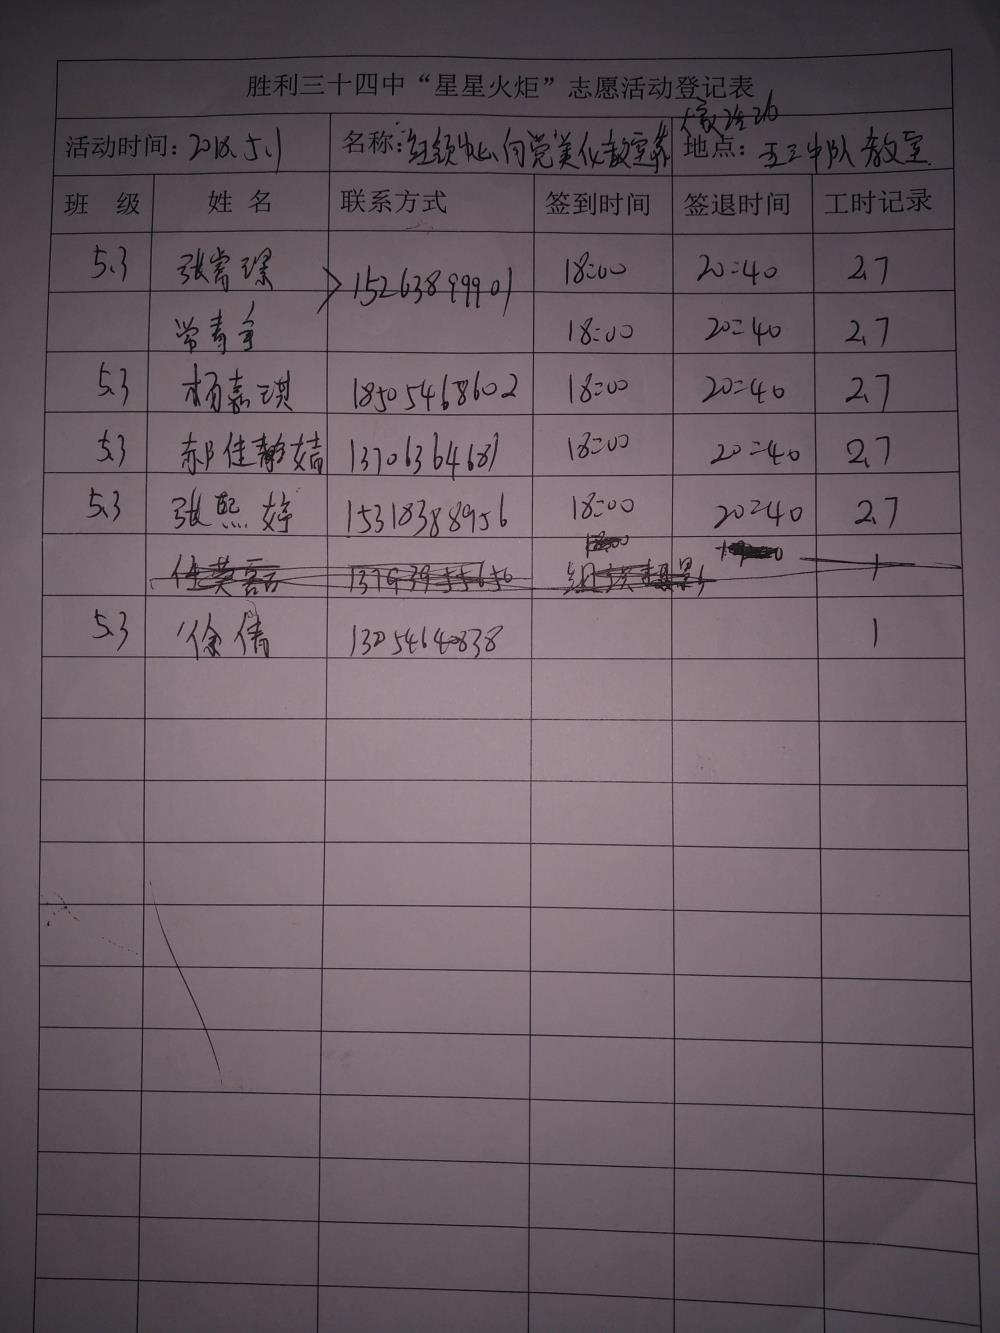 胜利三十四中“星星火炬”志愿活动登记表
活动时间：2018.5.1 名称：红领巾心向党美化教室 地点：五三中队教室
班 级 姓 名 联系方式 签到时间 签退时间 工时记录
5.3 张 15263899901 18:00 20:40 2.7
常青 18:00 20:40 2.7
5.3 杨嘉琪 18505468602 18:00 20:40 2.7
5.3 郝佳静婧 13706364681 18:00 20:40 2.7
5.3 张熙婷 15318388956 18:00 20:40 2.7
任英 13793955650 1
5.3 徐倩 13054640838 1